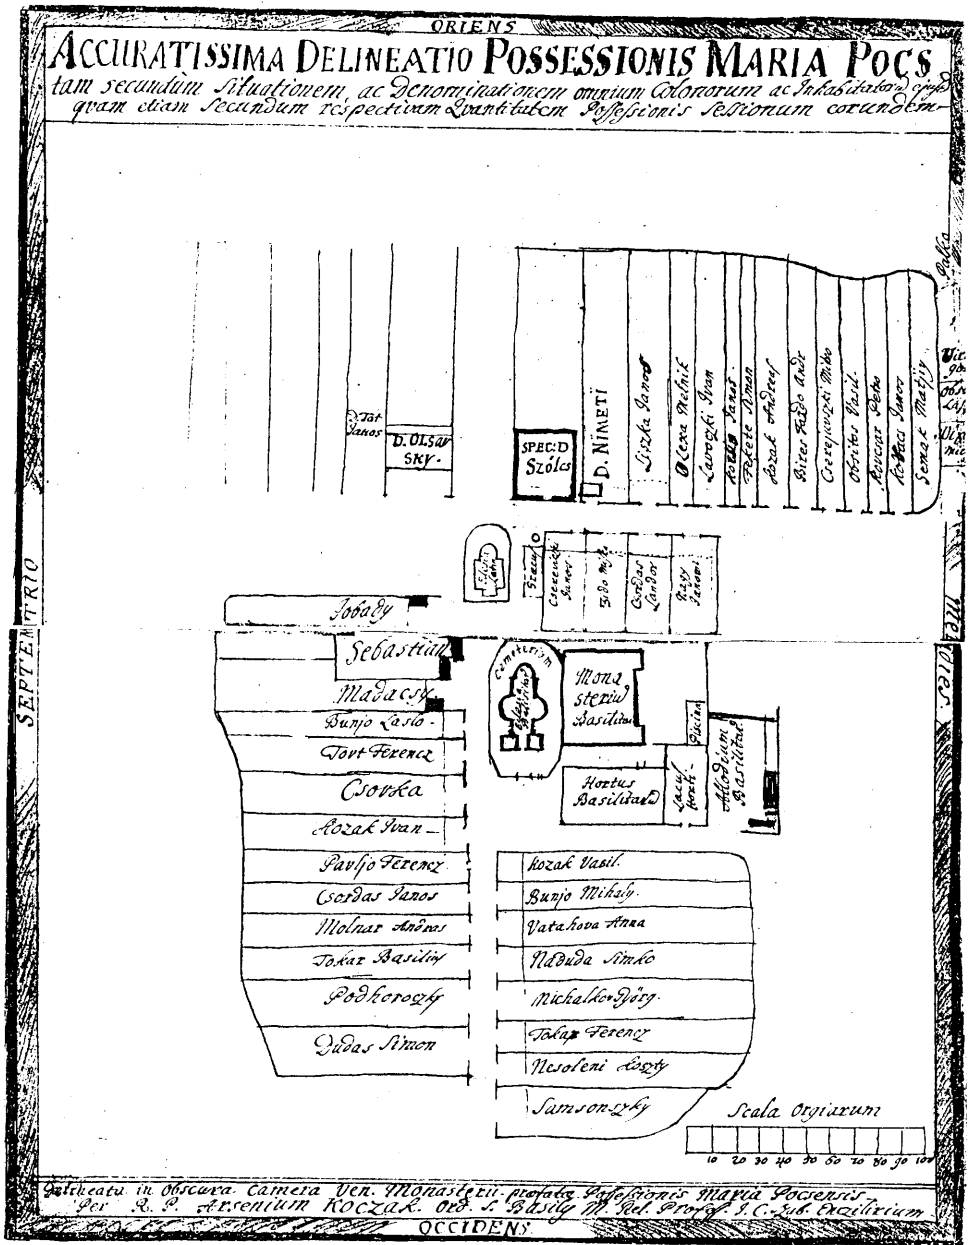 ORIENS
ACCURATISSIMA DELINEATIO POSSESSIONIS MARIA POCS
tam secundum Situationem, ac Denominationem omnium Colonorum ac Inhabitatorū
quam etiam Secundum respectivam Quantitatem Possessionis Sessionum eorundem
D. Tót
Janos
D. OLSAV
SKY.
SPEC: D
Szőlcs
D. NÍMETI
Liszka Janos
Olexa Melnik
Lavoczki Ivan
Janos
Fekete Simon
Kozak Andreas
Bires Fazdo Andr
Cserepuszki Mito
Obsitos Vasil.
Kovcar Petro
Kovacs Janos
Semak Matjiy
Palko
SEPTEMTRIO
MERIDIES
Janos
Csordas
Sandor
Nagy
Jobady
Sebastian
Madacsy
Bunjo Laslo
Tovt Ferencz
Csovka
Kozak Ivan
Pavljo Ferencz
Csordas Janos
Molnar András
Tokar Basiliy
Podhoroczky
Dudas Simon
Cemeterium
Mona
steriū
Basilitar
Piscina
Hortus
Basilitarū
Lacus
Horti
Allodium
Basilitar
Kozak Vasil.
Bunjo Mihaly.
Vatahova Anna
Naduda Simko
Michalko Györg.
Tokar Ferencz
Nesoleni Koszty
Samsonszky
Scala Orgiarum
10 20 30 40 50 60 70 80 90 100
Delineata in Obscura Camera Ven. Monasterii præfatæ Possessionis Maria Pocsensis
Per R. P. Arsenium KOCZAK. Ord. S. Basily M. Rel. Prof.
OCCIDENS